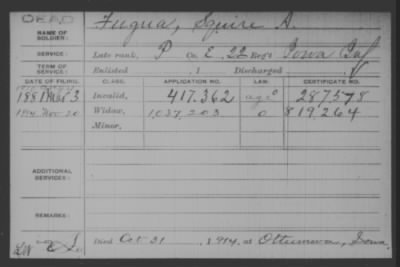 DEAD
NAME OF SOLDIER: Fuqua, Squire A.
SERVICE: Late rank, P Co. E, 22 Reg't Iowa Inf
TERM OF SERVICE: Enlisted , 1 Discharged , 1
DATE OF FILING. CLASS. APPLICATION NO. LAW. CERTIFICATE NO.
1881 Mar 3 Invalid, 417.362 287578
1914 Nov 20 Widow, 1,037,203 O 819264
Minor,
ADDITIONAL SERVICES:
REMARKS:
Died Oct 31, 1914, at Ottumwa, Iowa